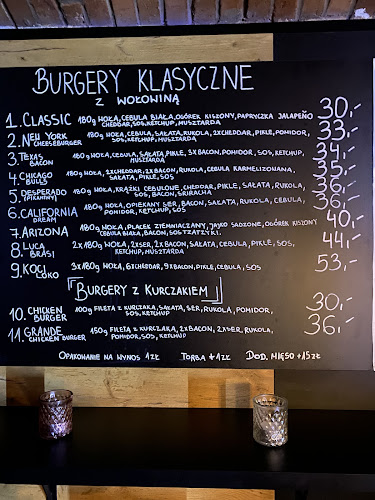 BURGERY KLASYCZNE
Z WOŁOWINĄ
1. CLASSIC 180g WOŁA, CEBULA BIAŁA, OGÓREK KISZONY, PAPRYCZKA JALAPEÑO 30,-
CHEDDAR, SOS, KETCHUP, MUSZTARDA
2. NEW YORK CHEESEBURGER 180g WOŁA, CEBULA, SAŁATA, RUKOLA, 2XCHEDDAR, PIKLE, POMIDOR, 33,-
SOS, KETCHUP, MUSZTARDA
3. TEXAS BACON 180g WOŁA, CEBULA, SAŁATA, PIKLE, 3XBACON, POMIDOR, SOS, KETCHUP, 34,-
MUSZTARDA
4. CHICAGO BULLS 180g WOŁA, 2XCHEDDAR, 2XBACON, RUKOLA, CEBULA KARMELIZOWANA, 35,-
SAŁATA, PIKLE, SOS
5. DESPERADO (PIKANTNY) 180g WOŁA, KRĄŻKI CEBULOWE, CHEDDAR, PIKLE, SAŁATA, RUKOLA, 36,-
SOS, BACON, SRIRACHA
6. CALIFORNIA DREAM 180g WOŁA, OPIEKANY SER, BACON, SAŁATA, RUKOLA, CEBULA, 36,-
POMIDOR, KETCHUP, SOS
7. ARIZONA 180g WOŁA, PLACEK ZIEMNIACZANY, JAJKO SADZONE, OGÓREK KISZONY 40,-
CEBULA BIAŁA, BACON, SOS TZATZYKI.
8. LUCA BRASI 2X180g WOŁA, 2XSER, 2XBACON, SAŁATA, CEBULA, PIKLE, SOS, 44,-
KETCHUP, MUSZTARDA
9. KOCI LOKO 3X180g WOŁA, 6XCHEDDAR, 9XBACON, PIKLE, CEBULA, SOS 53,-
BURGERY Z KURCZAKIEM
10. CHICKEN BURGER 100g FILETA Z KURCZAKA, SAŁATA, SER, RUKOLA, POMIDOR, 30,-
SOS, KETCHUP
11. GRANDE CHICKEN BURGER 150g FILETA Z KURCZAKA, 2XBACON, 2XSER, RUKOLA, 36,-
POMIDOR, SOS, KETCHUP
OPAKOWANIE NA WYNOS 1ZŁ TORBA +1ZŁ DOD. MIĘSO +15ZŁ